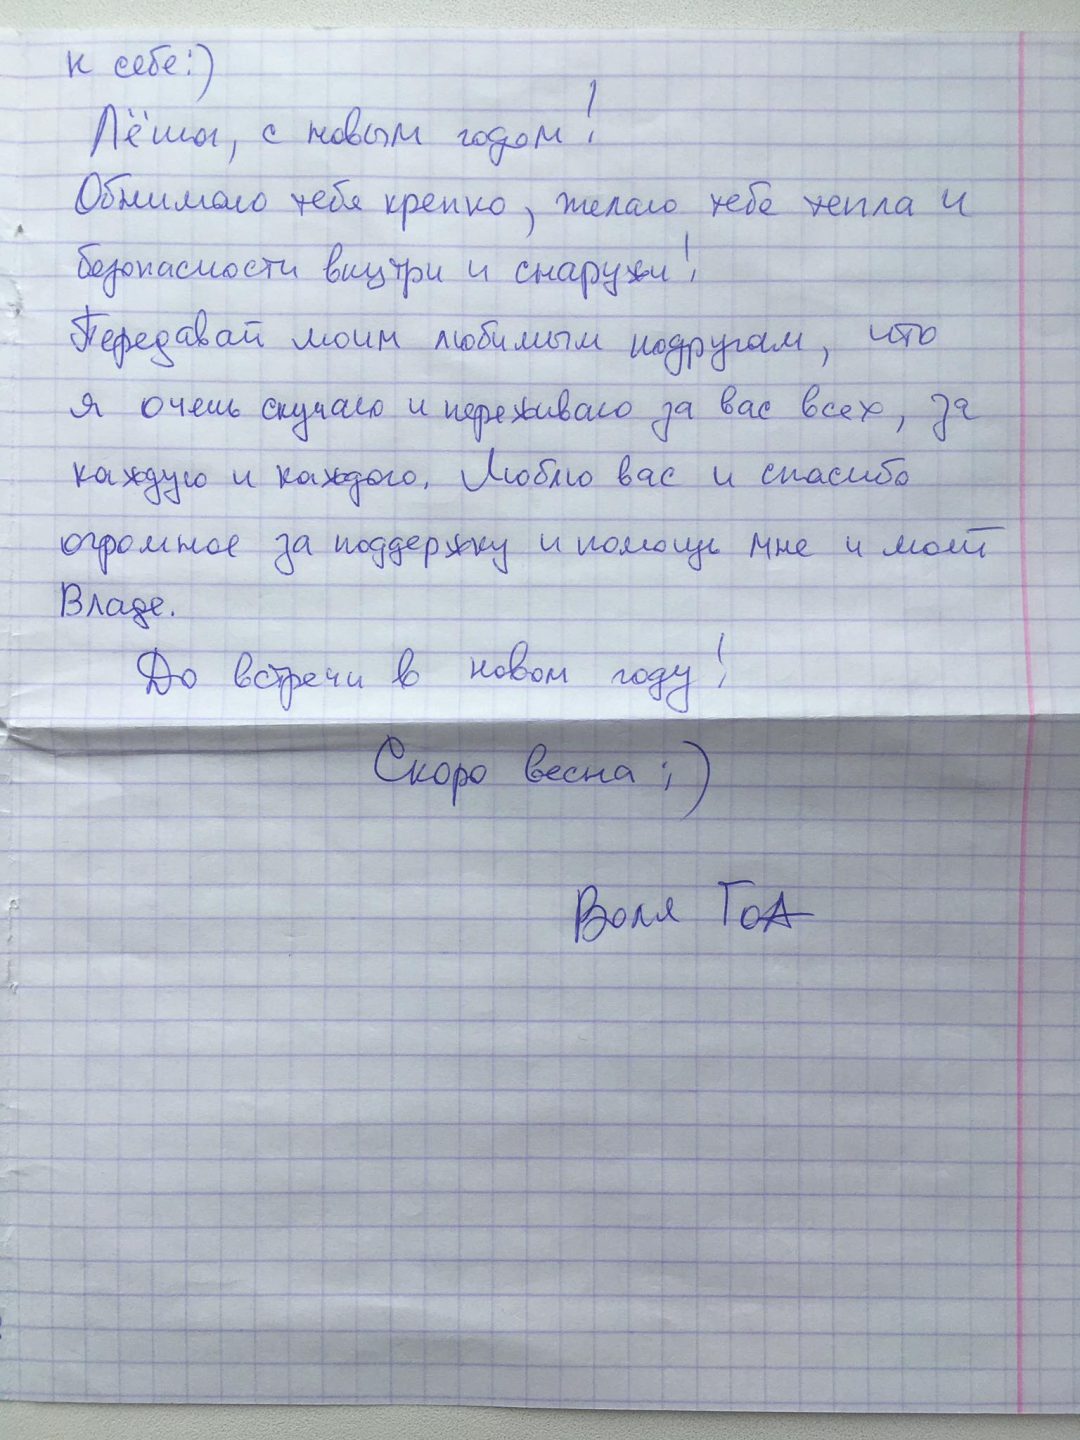 к себе:)
Лёша, с новым годом!
Обнимаю тебя крепко, желаю тебе тепла и
безопасности внутри и снаружи!
Передавай моим любимым подругам, что
я очень скучаю и переживаю за вас всех, за
каждую и каждого. Люблю вас и спасибо
огромное за поддержку и помощь мне и моей
Владе.
До встречи в новом году!
Скоро весна ;)
Воля ГоА